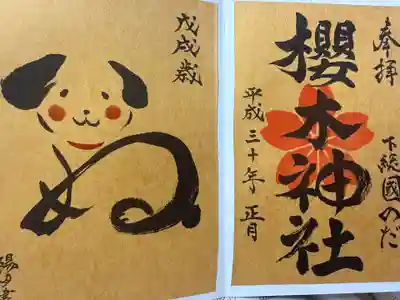 奉拝
下総國のだ
櫻木神社
平成三十年正月
戊戌歳
ぬ